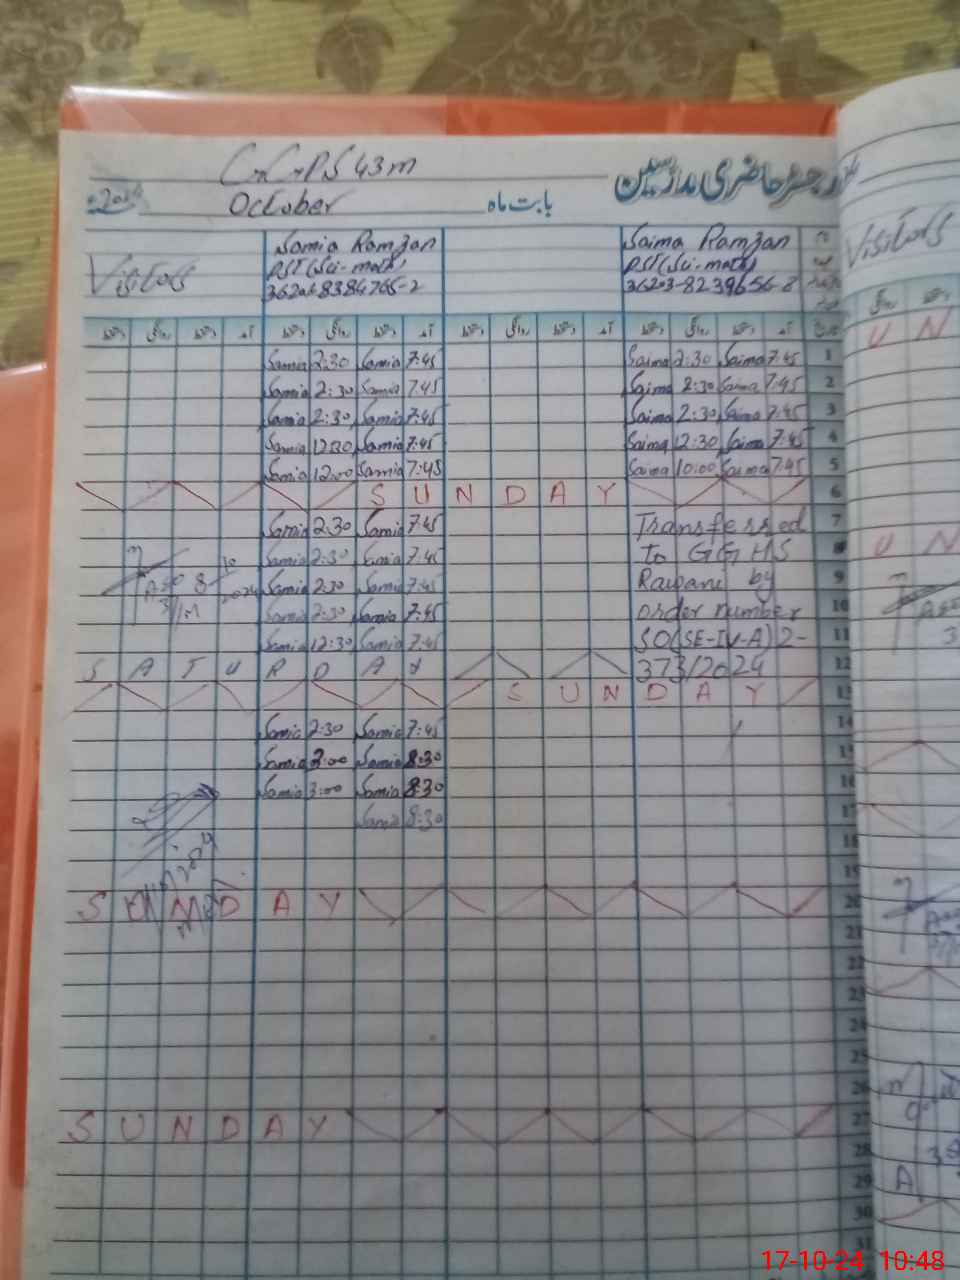 رجسٹر حاضری مدرسین
GGPS 43M
بابت ماہ October 2024
Saima Ramzan Samia Ramzan Visitors
PST(Sci-math) PST(Sci-math)
36203-8239656-8
آمد دستخط روانگی دستخط آمد دستخط روانگی دستخط آمد دستخط روانگی دستخط
Samia 2:30 Samia 7:45 Saima 2:30 Saima 7:45 1
Samia 2:30 Samia 7:45 Saima 2:30 Saima 7:45 2
Samia 2:30 Samia 7:45 Saima 2:30 Saima 7:45 3
Samia 12:30 Samia 7:45 Saima 12:30 Saima 7:45 4
Samia 12:00 Samia 7:45 Saima 10:00 Saima 7:45 5
SUNDAY 6
Samia 2:30 Samia 7:45 Transferred 7
Samia 2:30 Samia 7:45 To GGHS 8
Samia 2:30 Samia 7:45 Rawani by 9
Samia 2:30 Samia 7:45 order number 10
Samia 12:30 Samia 7:45 SO(SE-IV-A) 2- 11
SATURDAY 373/2024 12
SUNDAY 13
Samia 2:30 Samia 7:45 14
Samia 3:00 Samia 8:30 15
Samia 3:00 Samia 8:30 16
Samia 8:30 17
18
19
SUNDAY 20
21
22
23
24
25
26
SUNDAY 27
28
29
30
31
Visitors
U N
U N
A
17-10-24 10:48